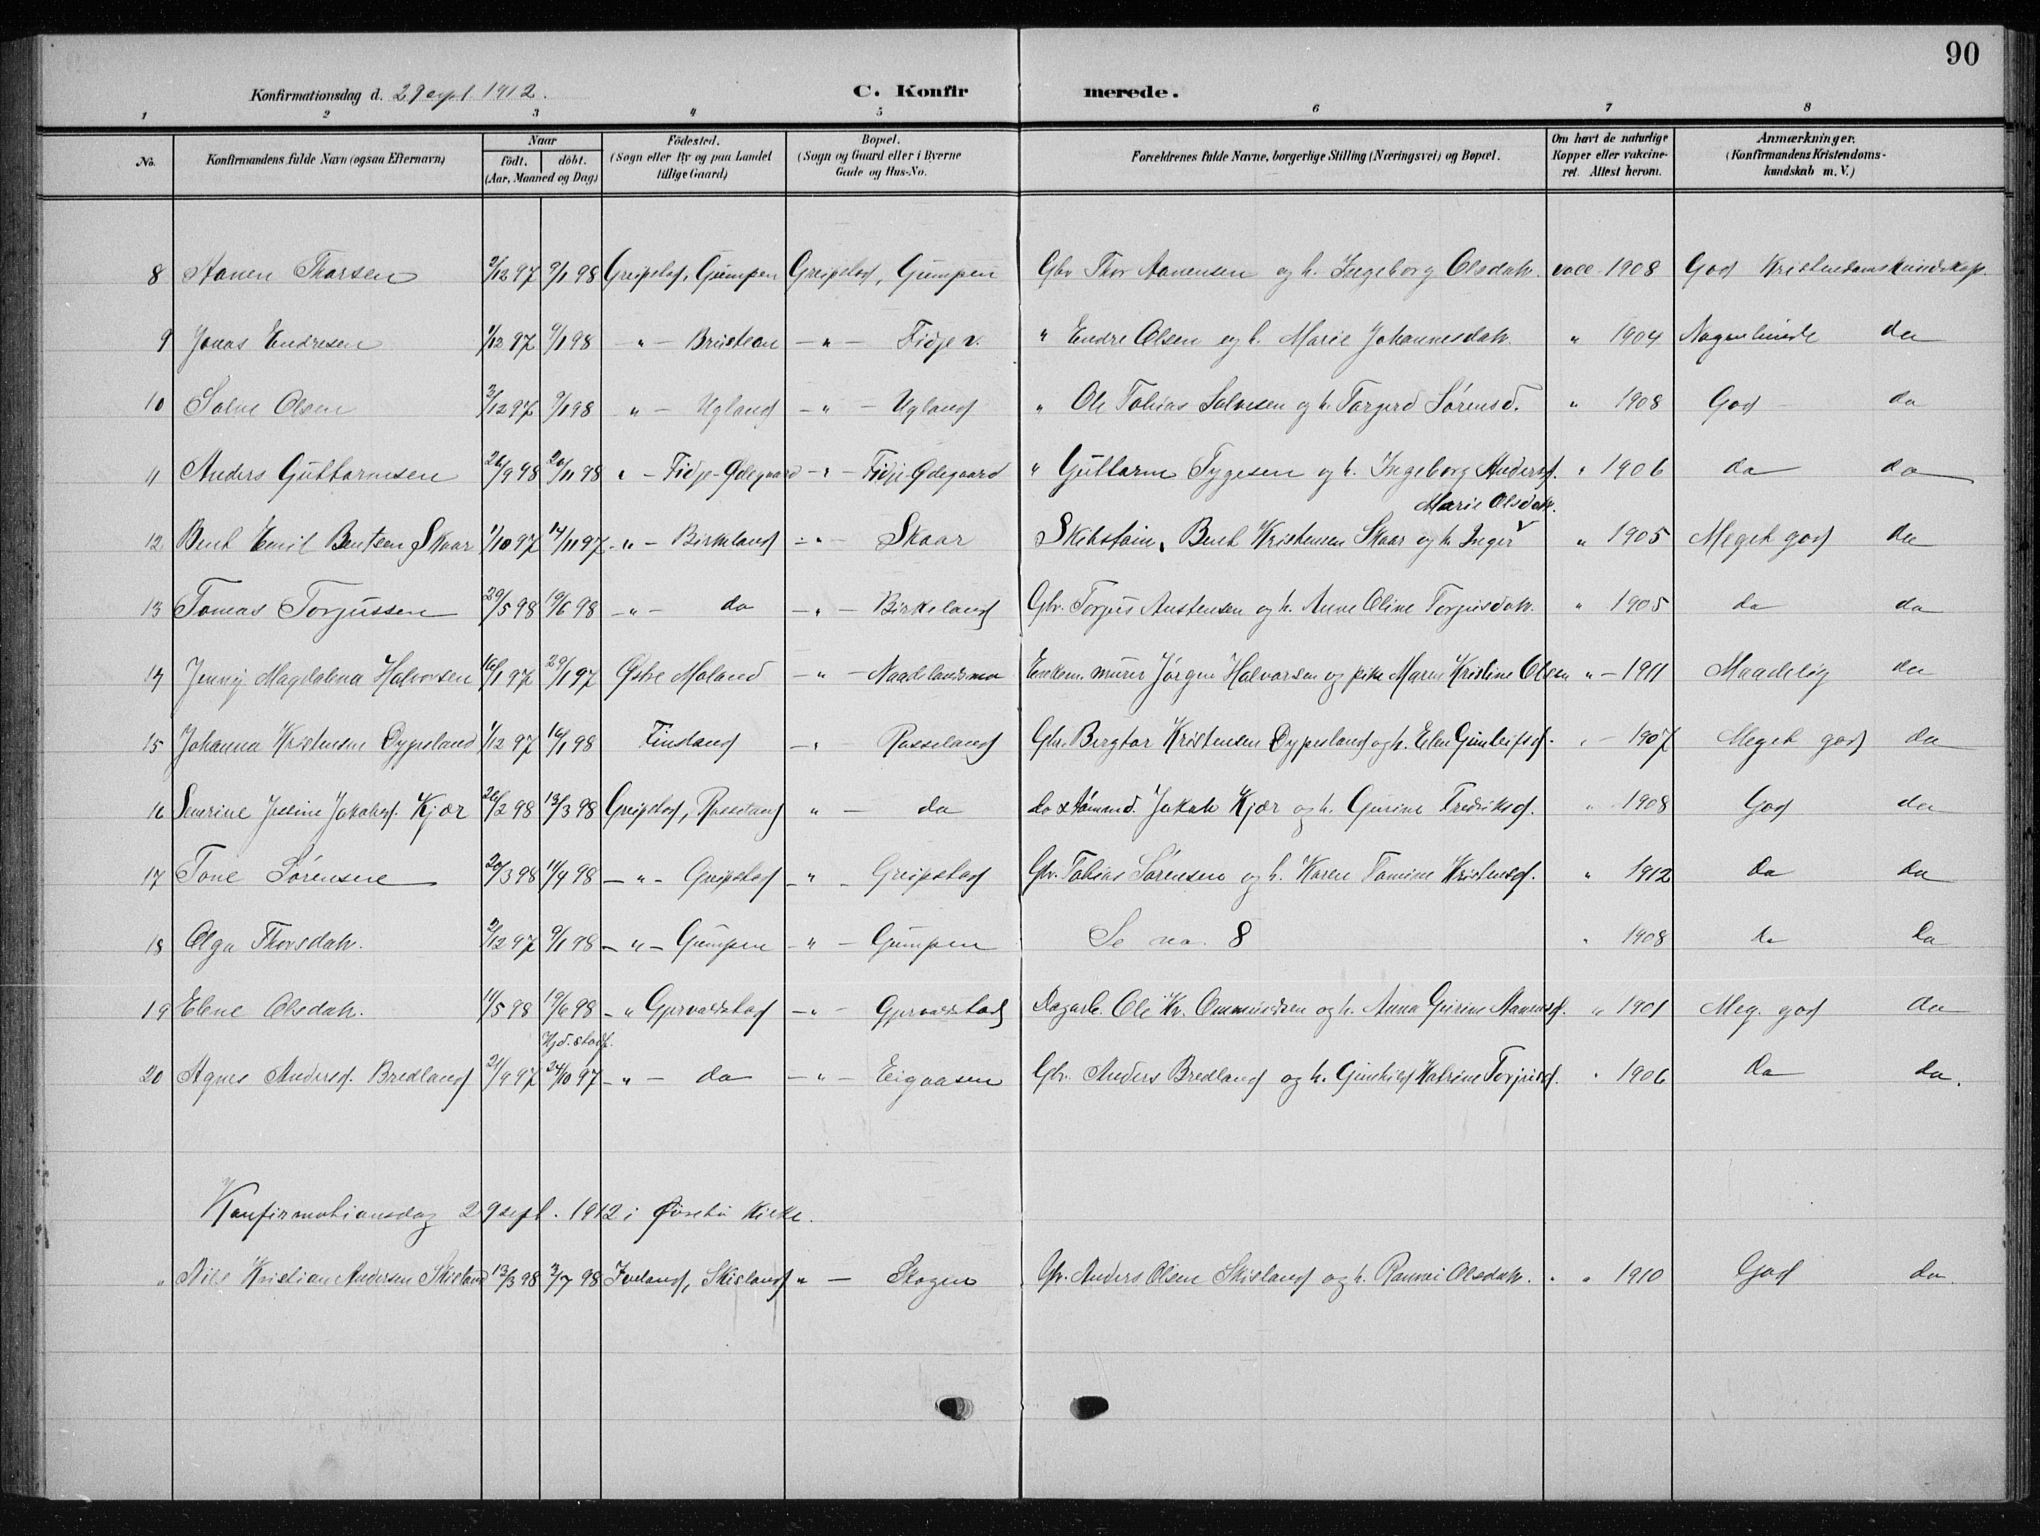 90
Konfirmationsdag d. 29 sept. 1912. C. Konfirmerede.
1 2 3 4 5 6 7 8
No. Konfirmandens fulde Navn (ogsaa Efternavn) Naar födt. döbt. (Aar, Maaned og Dag) Födested. (Sogn eller By og paa Landet tillige Gaard) Bopæl. (Sogn og Gaard eller i Byerne Gade og Hus-No. Forældrenes fulde Navne, borgerlige Stilling (Næringsvei) og Bopæl. Om havt de naturlige Kopper eller vakcineret. Attest herom. Anmærkninger. (Konfirmandens Kristendomskundskab m. V.)
8 Aanen Thorsen 2/12 97 9/1 98 Greipstad, Gumpen Greipstad, Gumpen Gbr Thor Aanensen og h. Ingeborg Olsdatr. vacc. 1908 God Kristendomskundskap.
9 Jonas Endresen 1/12 97 9/1 98 " - - " - Fidje v. " Endre Olsen og h. Marie Johannesdatr. " 1904 Nogenlunde da
10 Salve Olsen 3/12 97 9/1 98 " - Ugland - " - Ugland " Ole Tobias Salvesen og h. Torgerd Sørensd. " 1908 God da
11 Anders Guttormsen 26/9 98 20/11 98 " - Fidje-Ødegaard - " - Fidje-Ødegaard " Guttorm Tygesen og h. Ingeborg Andersd. " 1906 da da
Marie Olsdatr.
12 Bent Emil Bentsen Skaar 1/10 97 14/11 97 - " - Birkeland - " - Skaar Skibstøm. Bent Kristensen Skaar og h. Inger " 1905 Meget god da
13 Tomas Torjussen 29/5 98 19/6 98 - " - do - " - Birkeland Gbr. Torjus Austensen og h. Anne Oline Torjusdatr. " 1905 da da
14 Jenny Magdalena Halvorsen 16/1 97 29/1 97 Østre Moland - " - Naadelandsmo Enkem. murer Jørgen Halvorsen og pike Maren Kristine Olsen " - 1911 Maadelig da
15 Johanna Kristensen Dypesland 1/12 97 16/1 98 Finsland - " Rosseland Gbr. Bergtor Kristensen Dypesland og h. Elen Gunleifsd. " - 1907 Meget god da
16 Severine Jessine Jakobsd. Kjær 26/2 98 13/3 98 Greipstad, Rosseland " - da do & tømmd. Jakob Kjær og h. Gurine Fredriksd. " 1908 God da
17 Tone Sørensen 20/3 98 11/4 98 - " - Greipstad - " - Greipstad Gbr. Tobias Sørensen og h. Karen Tomine Kristensd. " 1912 da da
18 Olga Thorsdatr. 2/12 97 9/1 98 - " - Gumpen - " - Gumpen Se no. 8 " 1908 da da
19 Elene Olsdatr. 11/5 98 19/6 98 - " Gjervaldstad - " - Gjervaldstad Dagarb. Ole Kr. Ommundsen og h. Anna Gurine Aanensd. " 1901 Meg. god da
Hjd. stadf.
20 Agnes Andersd. Bredland 21/9 97 24/10 97 - " - do - " - Eigaasen Gbr. Anders Bredland og h. Gunhild Katrine Torjusd. " 1906 da da.
Konfirmationsdag 29 sept. 1912 i Øvrebø Kirke.
" Nils Kristian Andersen Skisland 13/3 98 3/7 98 Iveland, Skisland " - Skogen Gbr. Anders Olsen Skisland og h. Ranvei Olsdatr. " " 1910 God da.